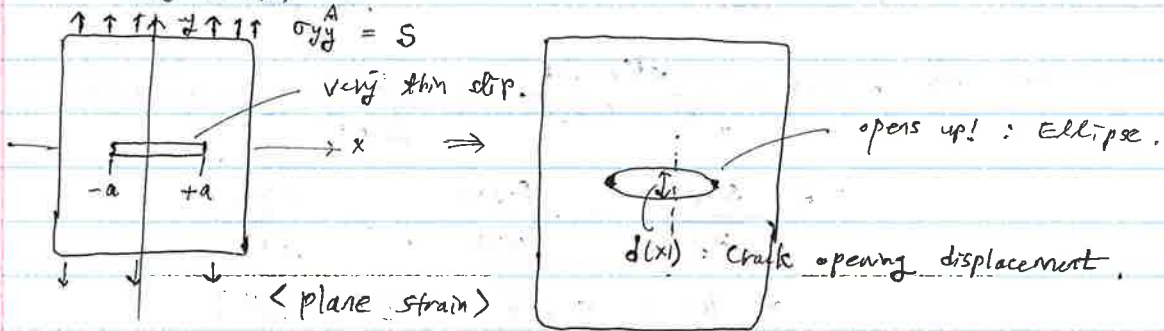 σyy^A = S
y
very thin slip.
x
⇒
opens up! : Ellipse.
-a
+a
d(x) : Crack opening displacement.
< plane strain >